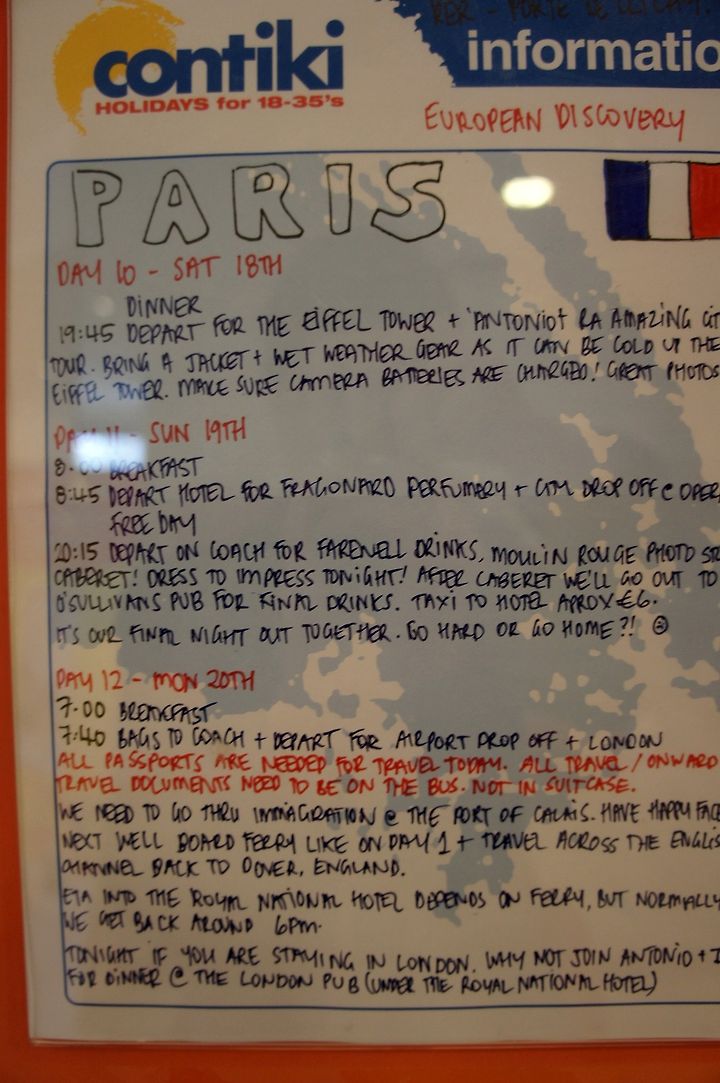 RER - PORTE DE
contiki
HOLIDAYS for 18-35's
informatio
EUROPEAN DISCOVERY
PARIS
DAY 10 - SAT 18TH
DINNER
19:45 DEPART FOR THE EIFFEL TOWER + 'ANTONIO+ RA AMAZING CIT
TOUR. BRING A JACKET + WET WEATHER GEAR AS IT CAN BE COLD UP THE
EIFFEL TOWER. MAKE SURE CAMERA BATTERIES ARE CHARGED! GREAT PHOTOS
DAY 11 - SUN 19TH
8.00 BREAKFAST
8:45 DEPART HOTEL FOR FRAGONARD PERFUMERY + DROP OFF @ OPER
FREE DAY
20:15 DEPART ON COACH FOR FAREWELL DRINKS, MOULIN ROUGE PHOTO ST
CABERET! DRESS TO IMPRESS TONIGHT! AFTER CABERET WE'LL GO OUT TO
O'SULLIVANS PUB FOR FINAL DRINKS. TAXI TO HOTEL APROX €6.
IT'S OUR FINAL NIGHT OUT TOGETHER. GO HARD OR GO HOME?! ☺
DAY 12 - MON 20TH
7.00 BREAKFAST
7:40 BAGS TO COACH + DEPART FOR AIRPORT DROP OFF + LONDON
ALL PASSPORTS ARE NEEDED FOR TRAVEL TODAY. ALL TRAVEL / ONWARD
TRAVEL DOCUMENTS NEED TO BE ON THE BUS. NOT IN SUITCASE.
WE NEED TO GO THRU IMMAGRATION @ THE PORT OF CALAIS. HAVE HAPPY FAC
NEXT WELL BOARD FERRY LIKE ON DAY 1 + TRAVEL ACROSS THE ENGLIS
CHANNEL BACK TO DOVER, ENGLAND.
ETA INTO THE ROYAL NATIONAL HOTEL DEPENDS ON FERRY, BUT NORMALLY
WE GET BACK AROUND 6PM.
TONIGHT IF YOU ARE STAYING IN LONDON, WHY NOT JOIN ANTONIO + I
FOR DINNER @ THE LONDON PUB (UNDER THE ROYAL NATIONAL HOTEL)